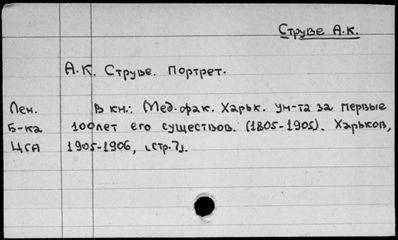 Струве А.К.
А.К. Струве. Портрет.
Лен. В кн.: Мед. фак. Харьк. ун-та за первые
Б-ка 100 лет его существов. (1805-1905). Харьков,
ЦГА 1905-1906, [стр. 7].